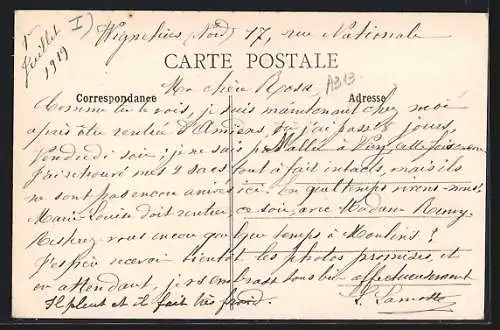 1er Juillet 1919 I)
Wignehies (Nord) 17, rue Nationale
CARTE POSTALE
Ma chère Rosa A313
Correspondance Adresse
Comme tu le vois, je suis maintenant chez moi
après être rentrée d'Amiens, où j'ai passé 8 jours,
Vendredi soir; je ne suis pas allée à cette fois-
J'ai retrouvé mes 2 sacs tout à fait intacts, mais ils
ne sont pas encore arrivés ici. En quel temps vivons-nous!
Marie-Louise doit rentrer, ce soir, avec Madame
Resterez-vous encore quelque temps à Moulins?
J'espère recevoir bientôt les photos promises, et
en attendant, je vs embrasse tous bien affectueusement
Il pleut et il fait très froid. L. Lamotte